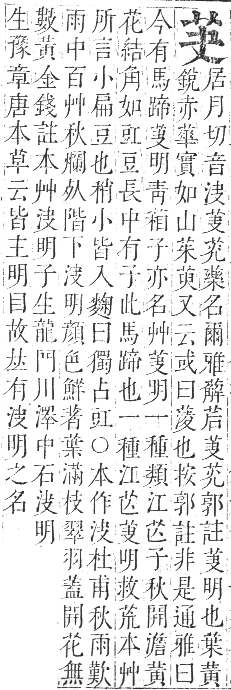 芵
居月切音決芵茪藥名爾雅薢茩芵茪郭註芵明也葉黃
銳赤華實如山茱萸又云或曰蔆也按郭註非是通雅曰
今有馬蹄芵明靑葙子亦名艸芵明一種類江芒子秋開澹黃
花結角如豇豆長中有子此馬蹄也一種江芒芵明救荒本艸
所言小扁豆也稍小皆入麴曰獨占豇○本作決杜甫秋雨歎
雨中百艸秋爛𣦸階下決明顏色鮮著葉滿枝翠羽蓋開花無
數黃金錢註本艸決明子生龍門川澤中石決明
生豫章唐本草云皆主明目故𠀤有決明之名